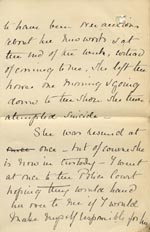 to have been over anxious
about her new work & at
the end of the week, instead
of coming to me, she left the
house one morning & going
down to the shore she there
attempted suicide.
She was rescued at
once once - but of course she
is now in custody - I went
at once to the Police Court
hoping they would hand
her over to me if I would
make myself responsible for her